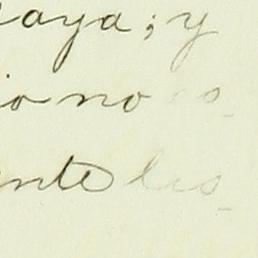 aya; y
io no es-
ente les-